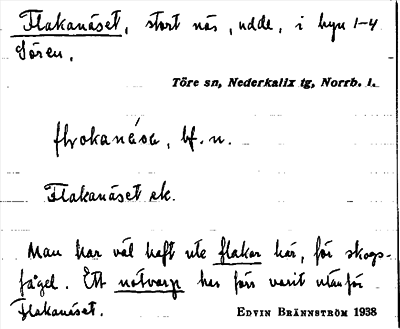 Flakanäset, stort näs, udde, i byn 1-4
Sören.
Töre sn, Nederkalix tg, Norrb. l.
bf. n.
Flakanäset ek.
Man har väl haft ute flakar här, för skogs-
fågel. Ett notvarp har förr varit utanför
Flakanäset.
EDVIN BRÄNNSTRÖM 1938